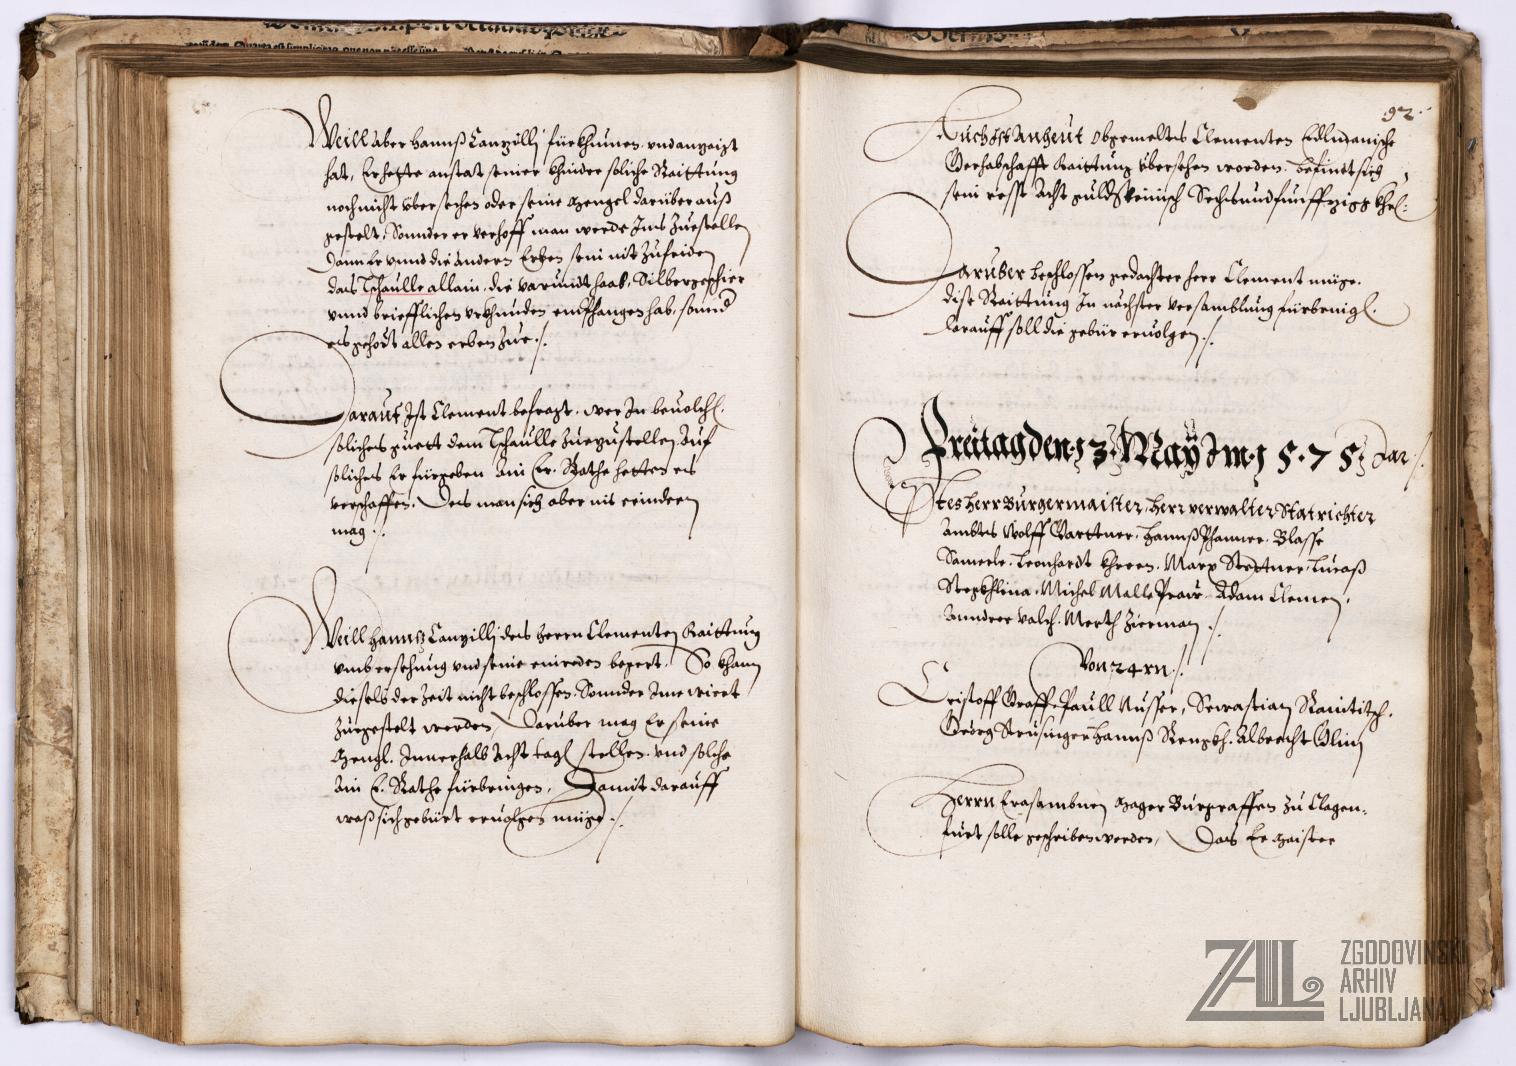 Weill aber Hannß Canzilli fürkhumen, und anzaigt
hat, Er hette anstat seiner Khinder soliche Raittung
noch nicht übersechen oder seine Mengel darüber auß
gestelt, Sonnder er verhoff man werde Ims Zuestellen
Dann Er unnd die andern Erben sein nit Zufriden
das Tschaulle allain, die varundt haab, Silbergeschier
unnd briefflichen urkhunden emphangen hab, sonnd
es gehört allen erben Zue ./.
Darauf Ist Clement befragt, wer Im bevolchen
soliches guett dem Tschaulle Zuezustellen, Auf
soliches Er fürgeben Ain Er. Rathe hetten es
verschaffen, Des man sich aber nit erindern
mag ./.
Weill Hannß Canzilli des Herrn Clementen Raittung
umb ersehung und seine einreden begert, So khan
diesels der Zeit nicht beschlossen, Sonnder Ime wiert
Zuegestelt werden, Darüber mag Er seine
Mengl Innerhalb Acht tagen stellen und solche
Ain E. Rathe fürbringen, Damit darauff
waß sich gebürt ervolgen müge ./.
92.
Auch Ist an heut obgemeltes Clementen
Gerhabschafft Raittung übersehen worden, befindt sich
sein resst Acht guld Reinisch Sechsundfunffzigg Khr:
Daruber beschlossen gedachter Herr Clement müge
dise Raittung In nächster versamblung fürbringen
darauff soll die gebür ervolgen ./.
Freitag den 13. May Im 1575. Jar ./.
Herr Burgermaister, Herr verwalter Statrichter
Ambts Wolff Garttner, Hannß Phanner, Blasse
Samerle, Leonhardt Khreen, Marx Stettner, Lucaß
Michel Malle Adam Clement,
Annder Merth Zierman ./.
Von 24rn ./.
Cristoff Graff, Paull Nusser, Sewastian
Georg Strusinger, Hannß Albrecht Glim
Herrn Erasambnen Mager Burggraffen zu Clagen-
furt solle geschriben werden, Das Er Maister
ZAL
ZGODOVINSKI
ARHIV
LJUBLJANA